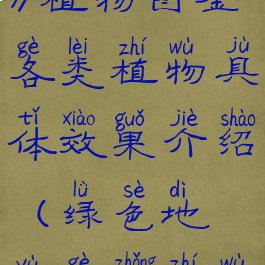 植物图鉴
gè lèi zhí wù jù
各类植物具
tǐ xiào guǒ jiè shào
体效果介绍
lǜ sè dì
（绿色地
gè zhǒng zhí wù